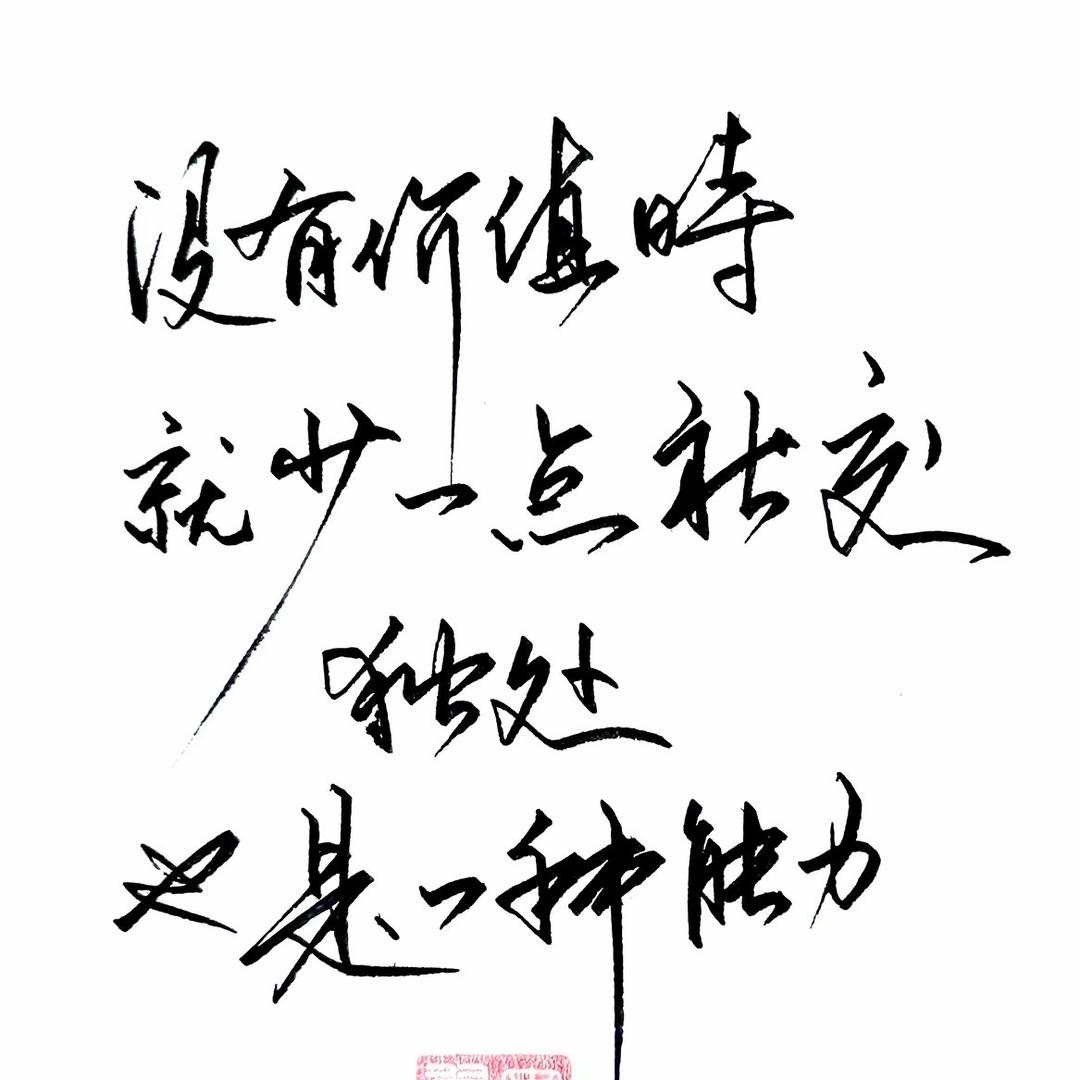 没有价值時
就少一点社交
独处
又是一种能力